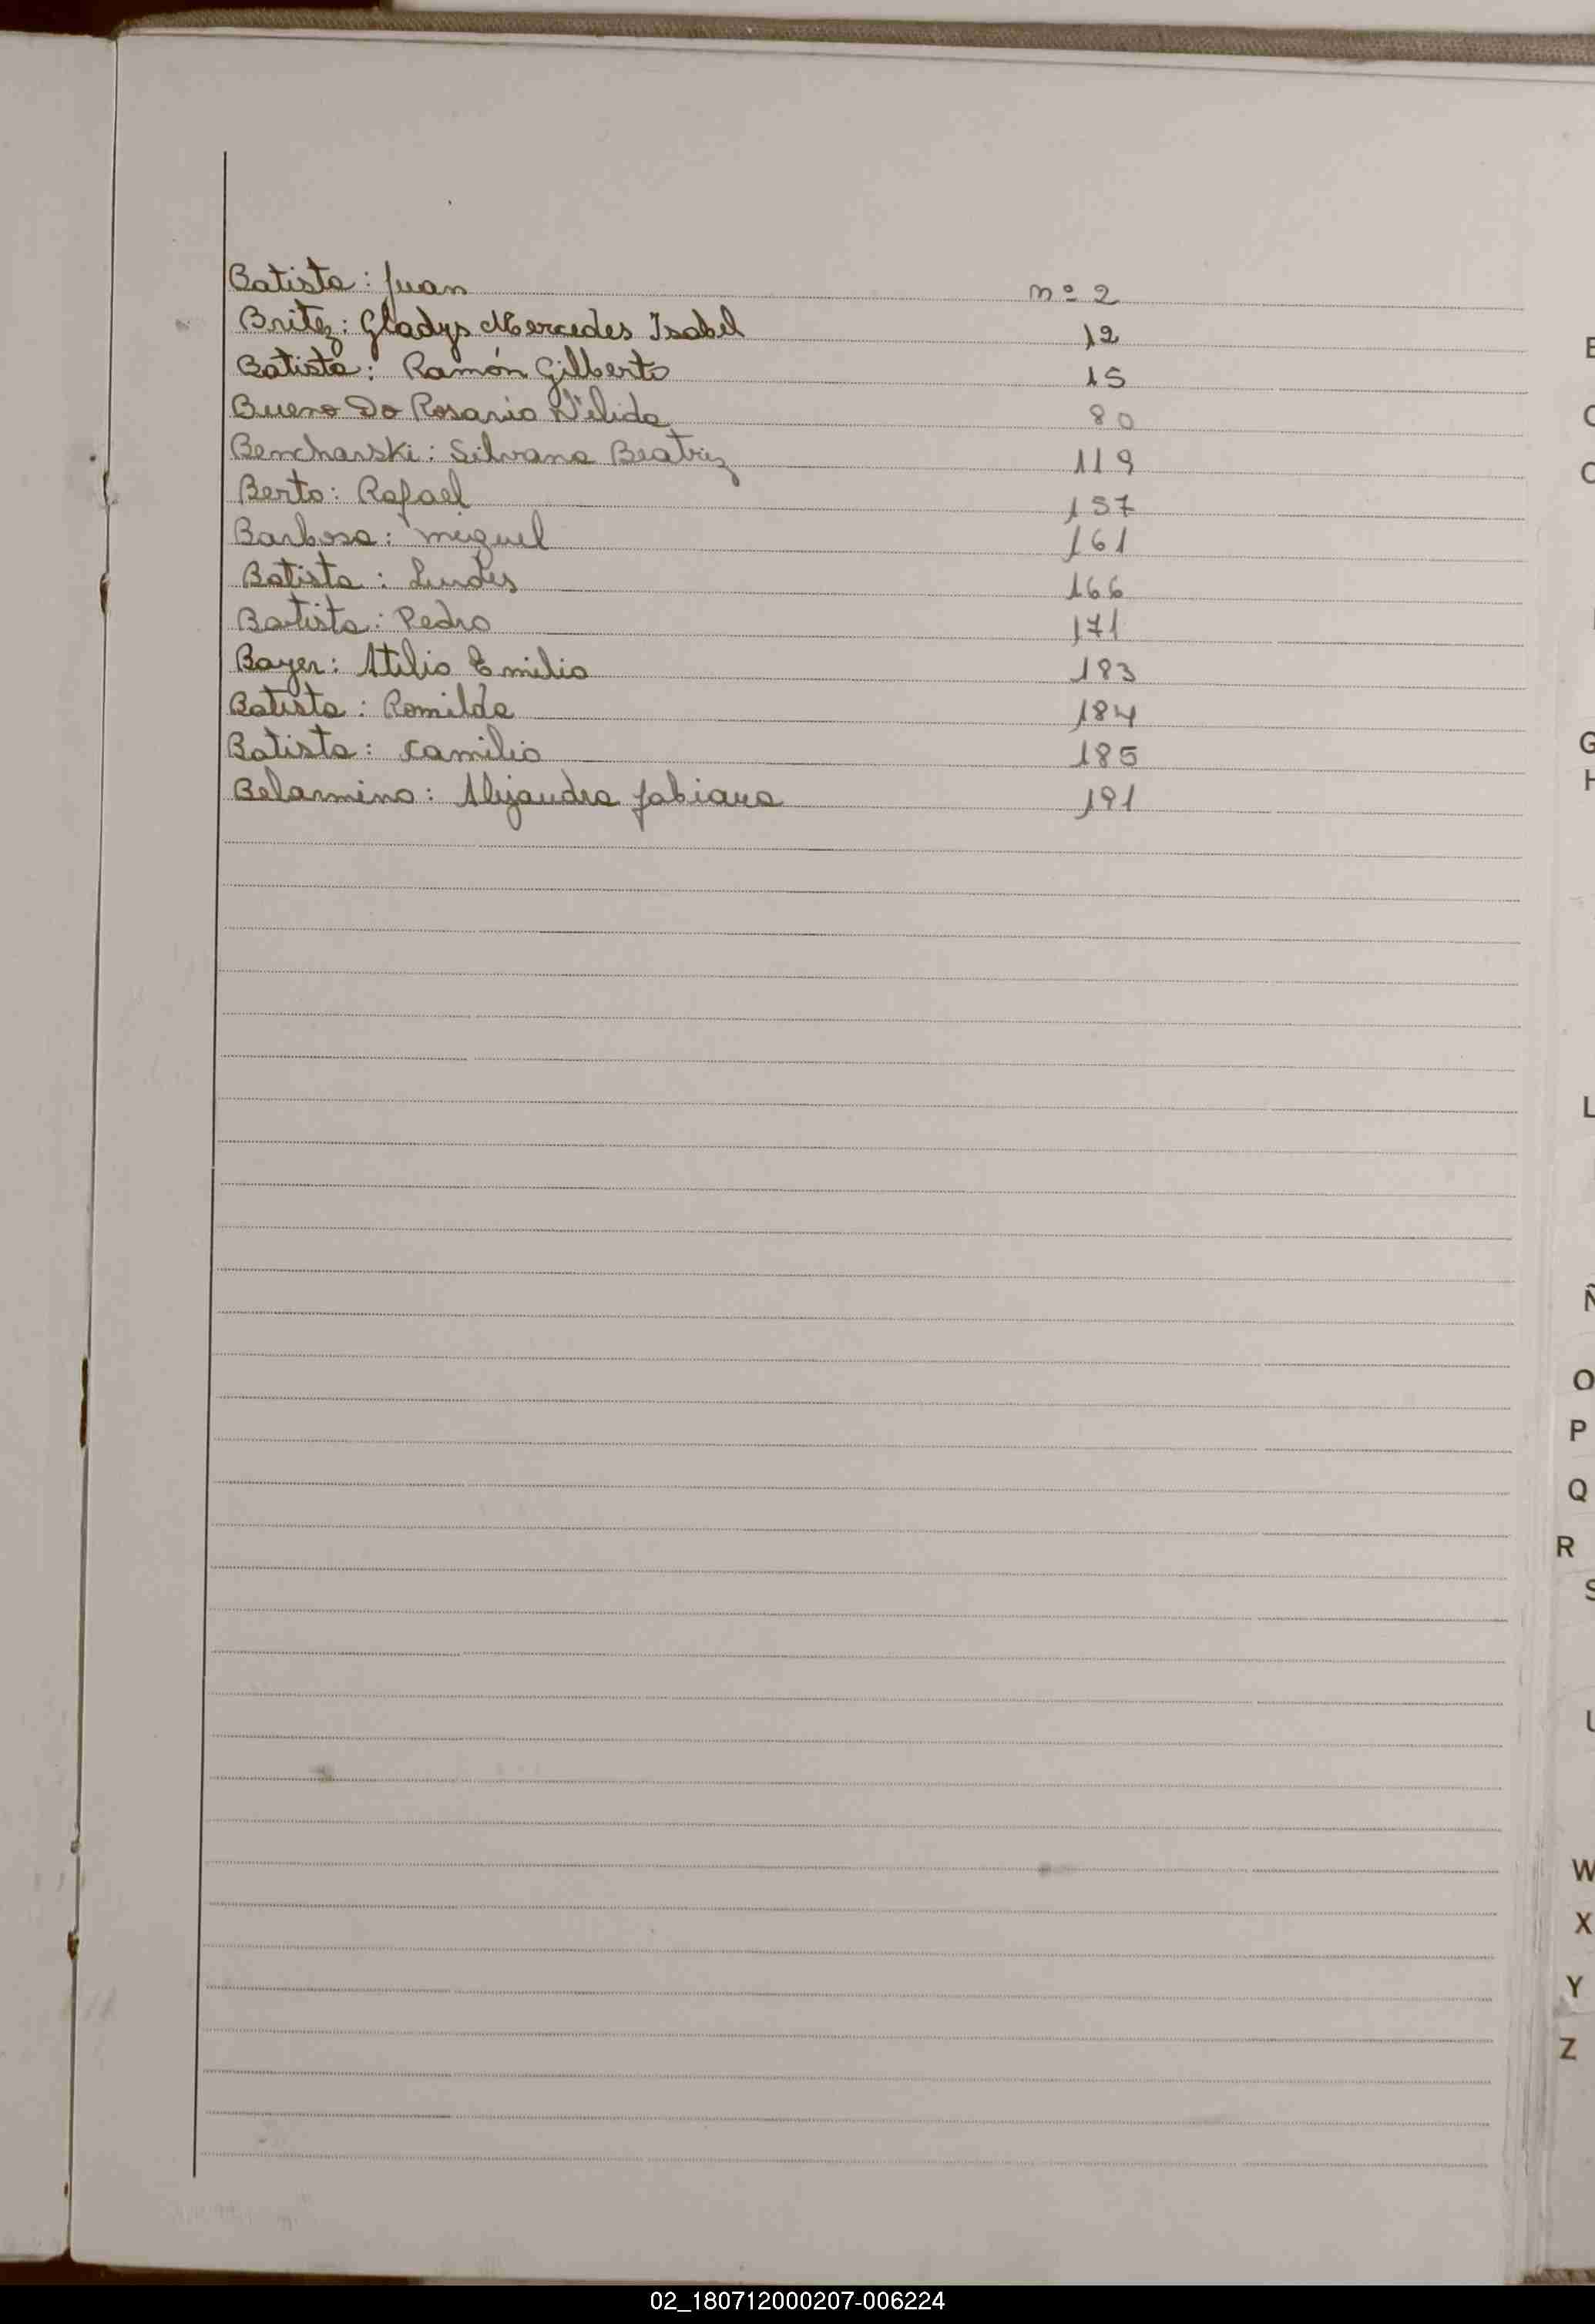 Batista: Juan nº 2
Britez: Gladys Mercedes Isabel 12
Batista: Ramón Gilberto 15
Bueno Do Rosario Nélida 80
Bencharski: Silvana Beatriz 119
Berto: Rafael 157
Barbosa: Miguel 161
Batista: Lurdes 166
Batista: Pedro 171
Bayer: Atilio Emilio 183
Batista: Romilda 184
Batista: Camilio 185
Belarmino: Alejandra Fabiana 191
E
C
C
G
H
L
Ñ
O
P
Q
R
S
U
W
X
Y
Z
02_180712000207-006224